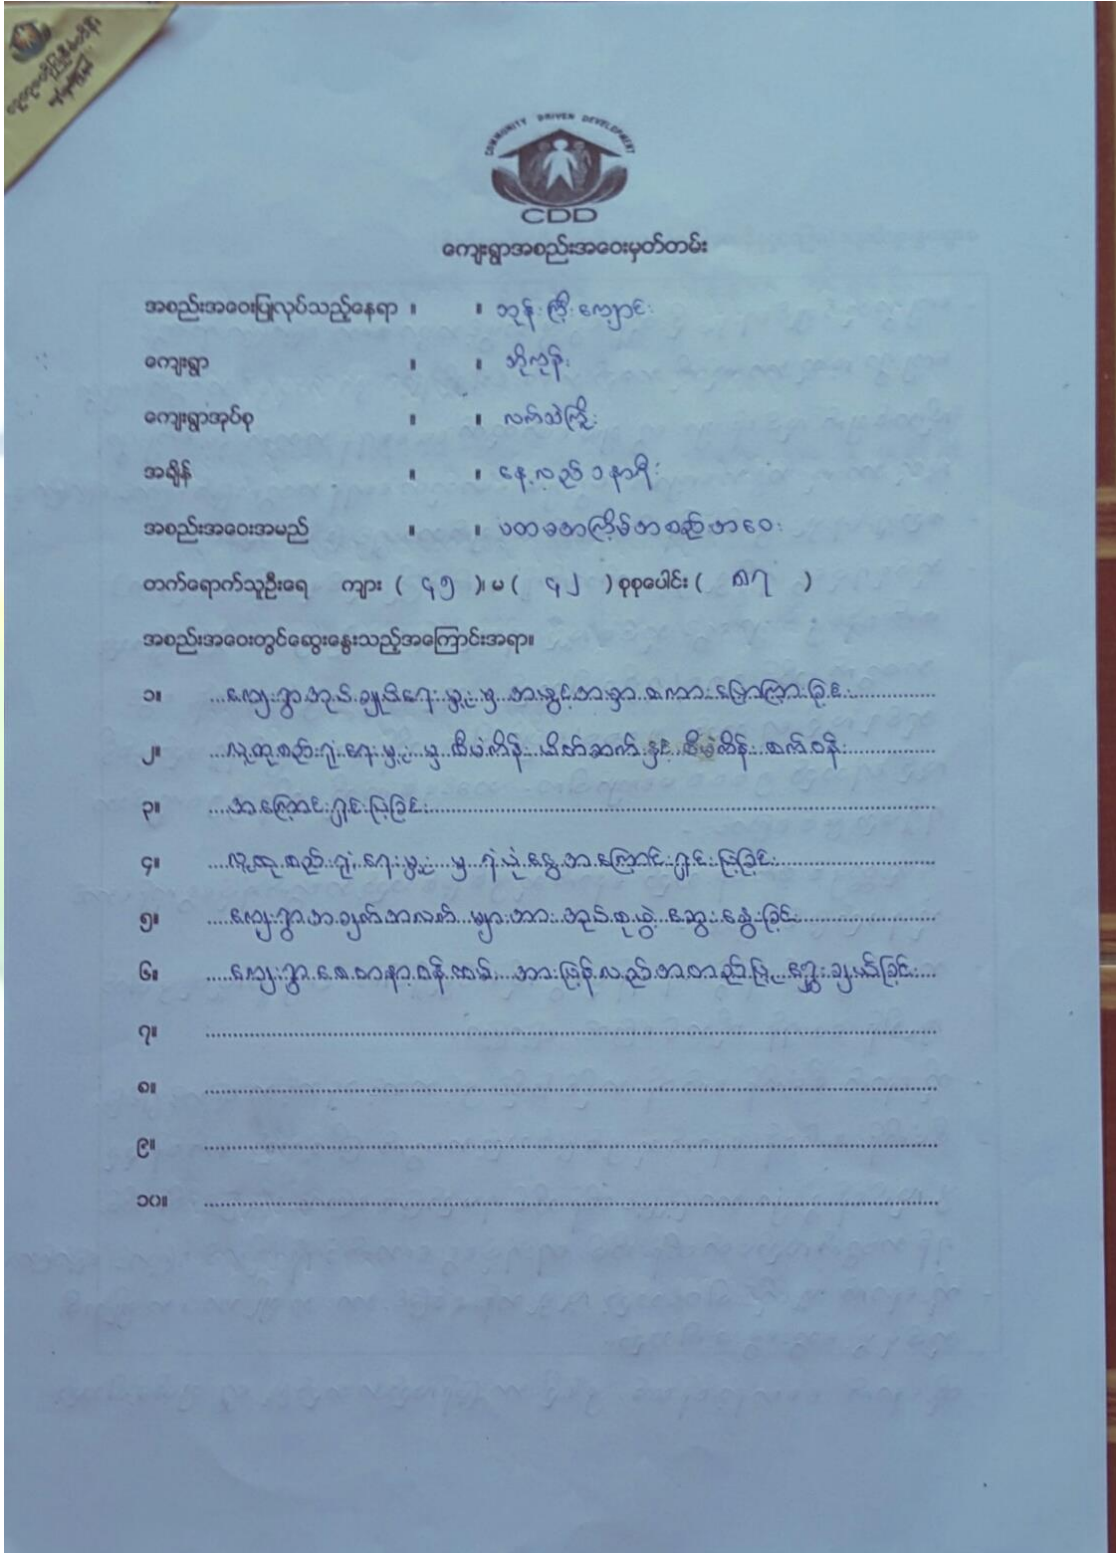 COMMUNITY DRIVEN DEVELOPMENT
CDD
ကျေးရွာအစည်းအဝေးမှတ်တမ်း
အစည်းအဝေးပြုလုပ်သည့်နေရာ ။ ။ ဘုန်းကြီးကျောင်း
ကျေးရွာ ။ ။ ဘိုကုန်း
ကျေးရွာအုပ်စု ။ ။ လက်သဲကြီး
အချိန် ။ ။ နေ့လည် ၁ နာရီ
အစည်းအဝေးအမည် ။ ။ ပထမအကြိမ်အစည်းအဝေး
တက်ရောက်သူဦးရေ ကျား ( ၄၅ )၊ မ ( ၄၂ ) စုစုပေါင်း ( ၈၇ )
အစည်းအဝေးတွင်ဆွေးနွေးသည့်အကြောင်းအရာ။
၁။ ကျေးရွာအုပ်ချုပ်ရေးမှူးမှ အဖွင့်အမှာစကားပြောကြားခြင်း
၂။ လူထုစည်းရုံးရေးမှူးမှ စီမံကိန်းမိတ်ဆက်နှင့် စီမံကိန်းစက်ဝန်း
၃။ အကြောင်းရှင်းပြခြင်း
၄။ လူထုစည်းရုံးရေးမှူးမှ ရံပုံငွေအကြောင်းရှင်းပြခြင်း
၅။ ကျေးရွာအချက်အလက်များအား အုပ်စုဖွဲ့ဆွေးနွေးခြင်း
၆။ ကျေးရွာစေတနာ့ဝန်ထမ်းအားဖြန်လည်အတည်ပြုရွေးချယ်ခြင်း
၇။
၈။
၉။
၁၀။